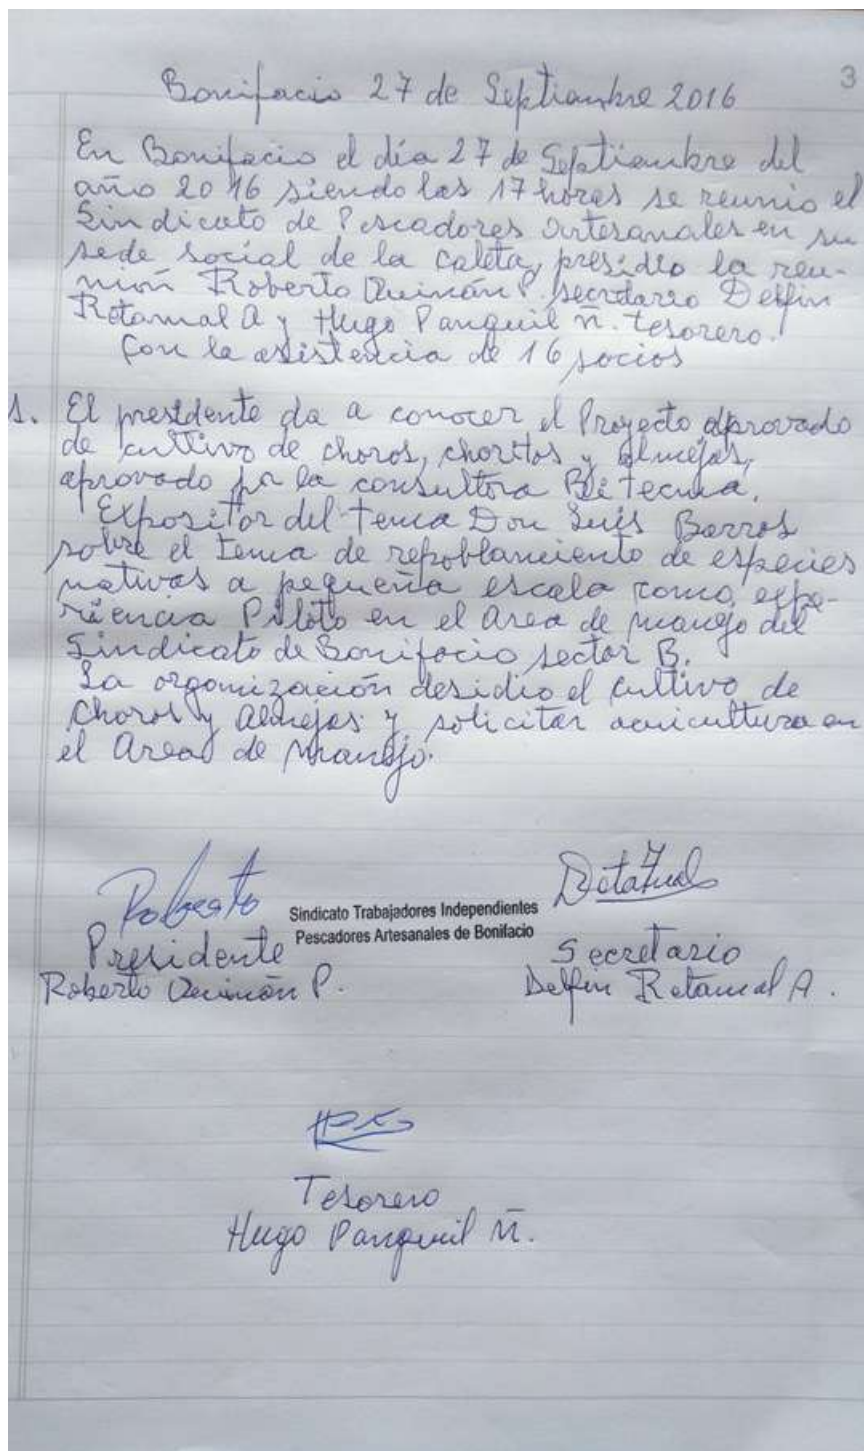 3
Bonifacio 27 de Septiembre 2016
En Bonifacio el día 27 de Septiembre del
año 2016 siendo las 17 horas se reunio el
Sindicato de Pescadores Artesanales en su
sede social de la caleta, presidio la reu-
nión Roberto Quinán P. secretario Delfin
Retamal A y Hugo Panguil Ñ. tesorero.
Con la asistencia de 16 socios
1. El presidente da a conocer el Proyecto aprovado
de cultivo de choros, choritos y almejas,
aprovado por la consultora Bitecma.
Expositor del tema Don Luis Barros
sobre el tema de repoblamiento de especies
nativas a pequeña escala como expe-
riencia Piloto en el area de manejo del
Sindicato de Bonifacio sector B.
La organización desidio el cultivo de
Choros y Almejas y solicitar acuicultura en
el Area de manejo.
Roberto
Sindicato Trabajadores Independientes
Pescadores Artesanales de Bonifacio
Presidente
Roberto Quinán P.
Secretario
Delfin Retamal A.
Tesorero
Hugo Panguil Ñ.